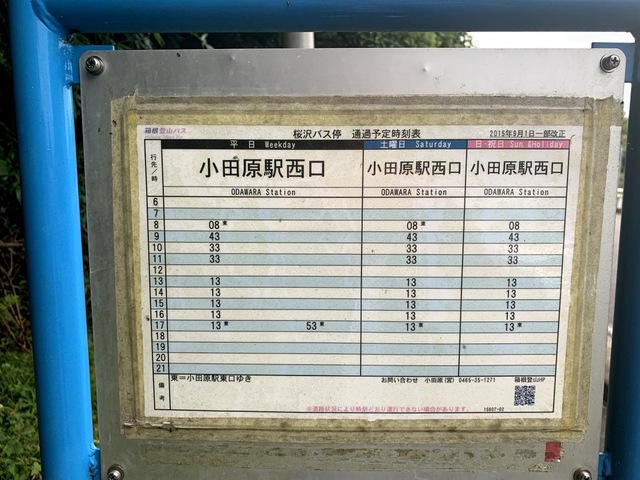 箱根登山バス
桜沢バス停 通過予定時刻表
2015年9月1日一部改正
行先/時 平日 Weekday 土曜日 Saturday 日・祝日 Sun.&Holiday
小田原駅西口 小田原駅西口 小田原駅西口
ODAWARA Station ODAWARA Station ODAWARA Station
6
7
8 08東 08東 08
9 43 43 43
10 33 33 33
11 33 33 33
12
13 13 13 13
14 13 13 13
15 13 13 13
16 13 13 13
17 13東 53東 13東 13東
18
19
20
21
備考 東=小田原駅東口ゆき お問い合わせ 小田原(営) 0465-35-1271 箱根登山HP
※道路状況により時刻どおり運行できない場合があります。 15607-02